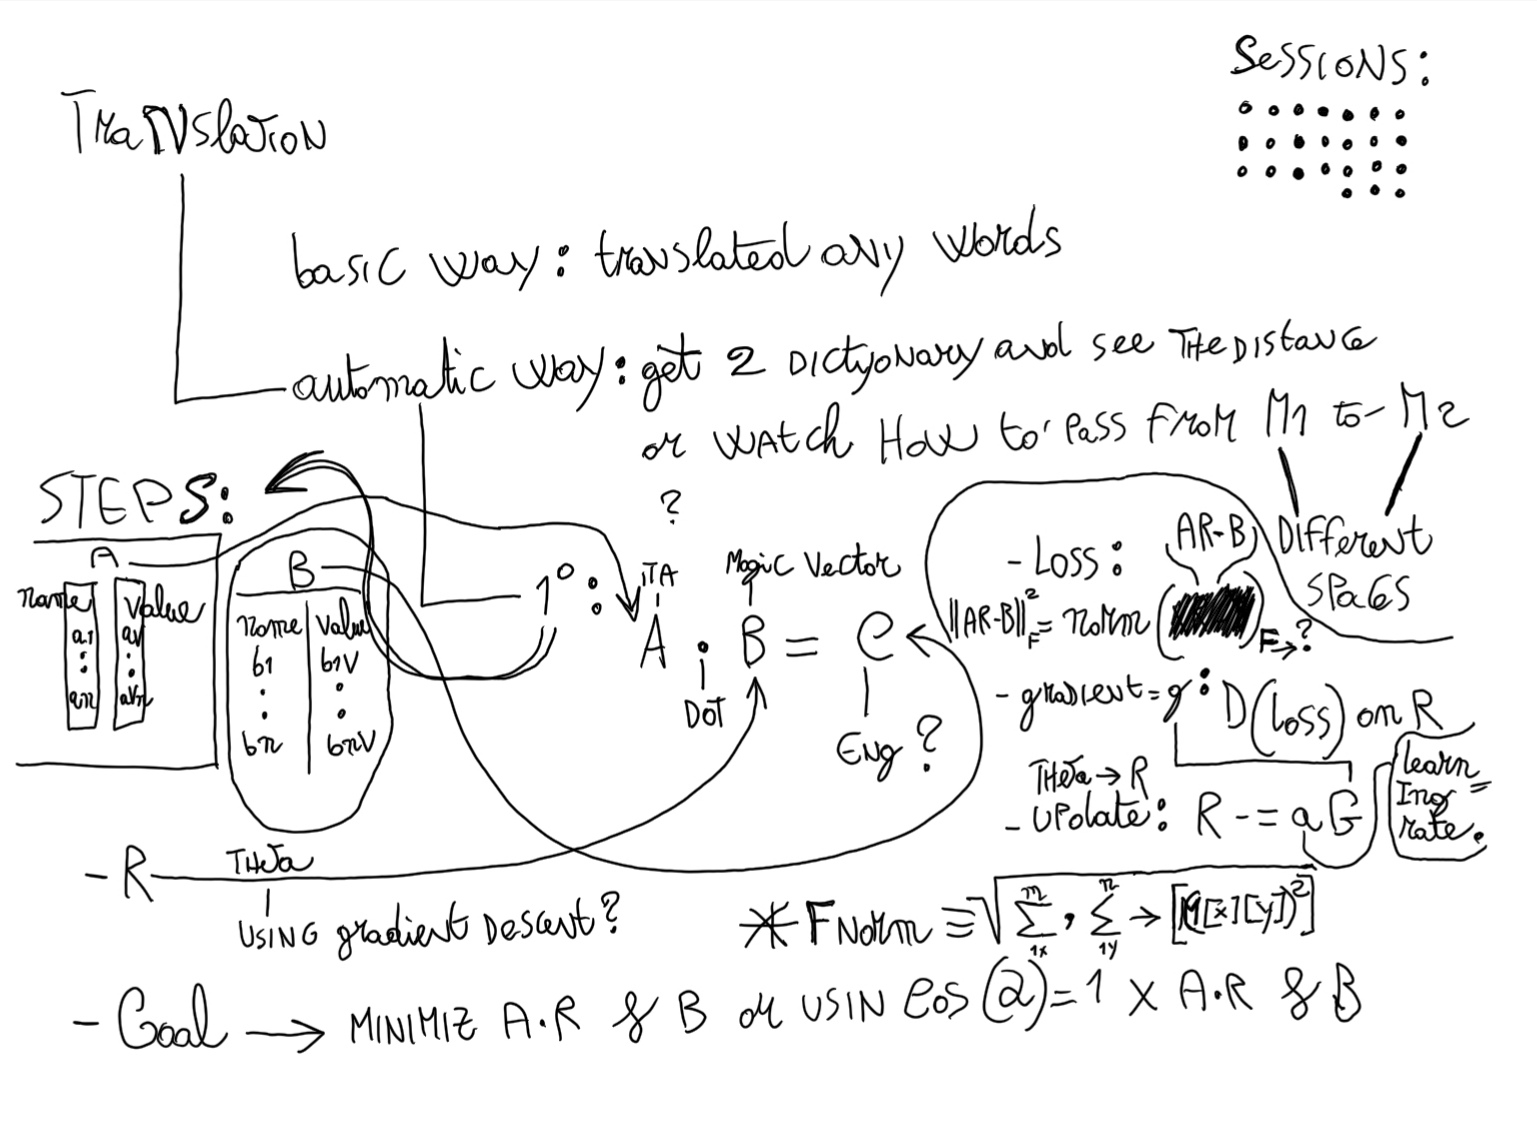 Sessions:
Translation
basic way: translated any words
automatic way: get 2 Dictyonary and see The Distance
or watch How to' pass from M1 to M2
STEPS:
?
AR-B
Different
spaces
A
name value
a1 av
an avn
B
name value
b1 b1v
bn bnv
1°:
ITA
Magic Vector
A . B = C
DOT
Eng ?
- Loss:
||AR-B||²F = norm ( ) F→?
- gradient = g: D(loss) on R
Theta → R
- Update: R -= a G
learn
Ing =
rate.
- R Theta
USING gradient Descent?
* F Norm ≡ √ m Σ 1x , n Σ 1y → [(M[x][y])²]
- Goal → MINIMIZ A.R & B or USIN cos(2)=1 x A.R & B